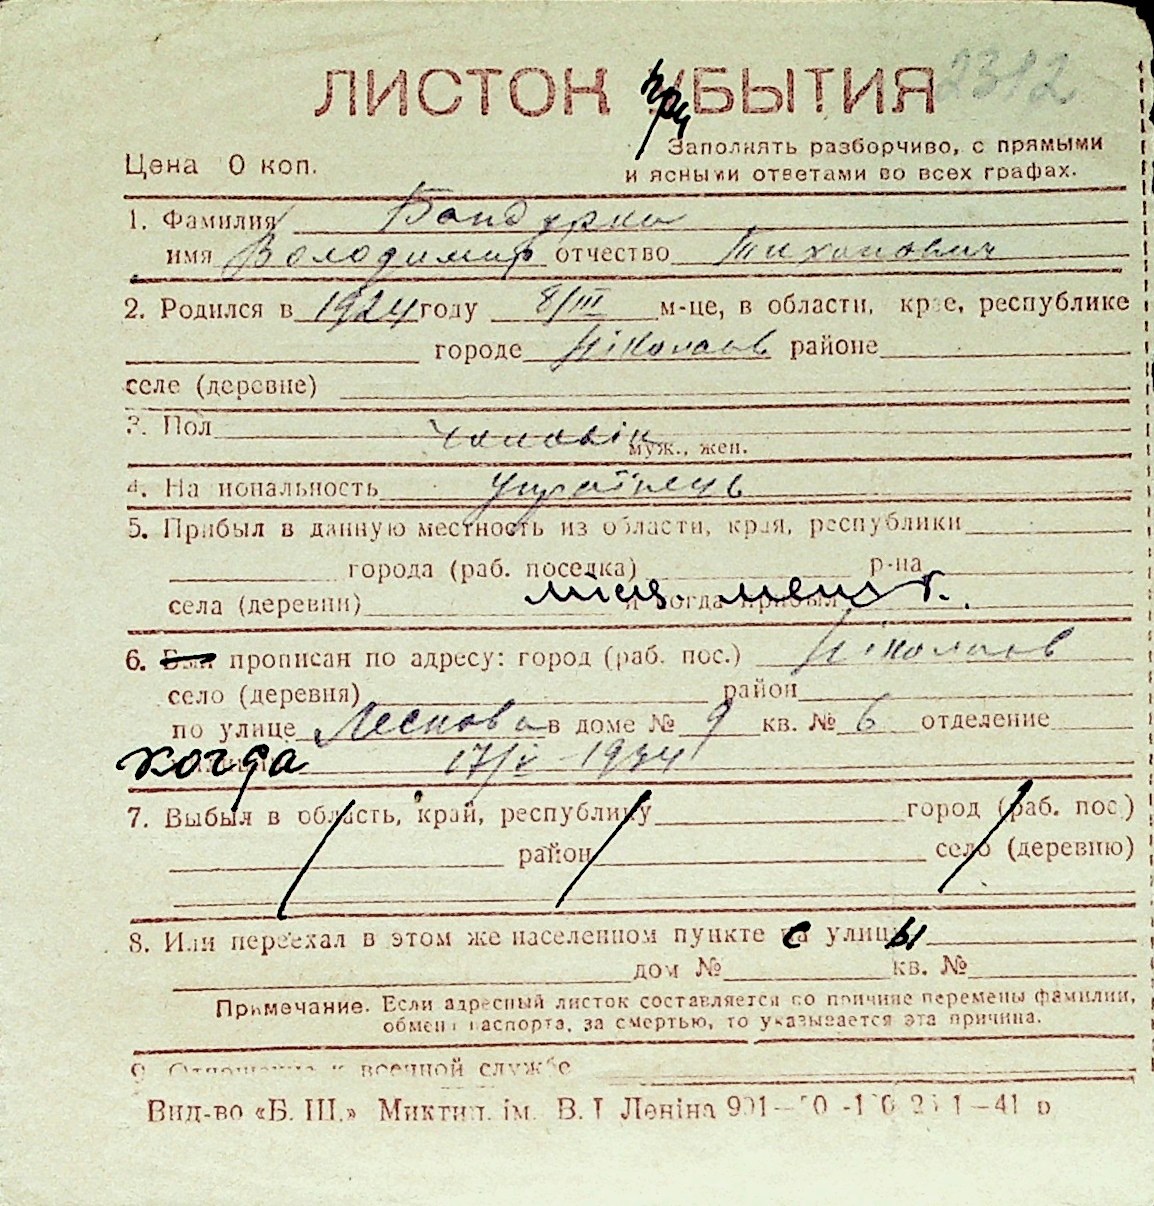 2312
ЛИСТОК при БЫТИЯ
Цена 0 коп.
Заполнять разборчиво, с прямыми
и ясными ответами во всех графах.
1. Фамилия Бондурко
имя Володимир отчество Тихонович
2. Родился в 1924 году 8/III м-це, в области, крае, республике
городе Ніколаєв районе
селе (деревне)
3. Пол чоловік
муж., жен.
4. Национальность Українець
5. Прибыл в данную местность из области, края, республики
города (раб. поселка) р-на
села (деревни) и когда прибыл
місц. мешк.
6. Был прописан по адресу: город (раб. пос.) Ніколаєв
село (деревня) район
по улице в доме № 9 кв. № 6 отделение
когда
7. Выбыл в область, край, республику город (раб. пос.)
район село (деревню)
8. Или переехал в этом же населенном пункте с улицы
дом № кв. №
Примечание. Если адресный листок составляется по причине перемены фамилии,
обмена паспорта, за смертью, то указывается эта причина.
9. Отношение к военной службе
Вид-во «Б. Ш.» ім. В. І Леніна